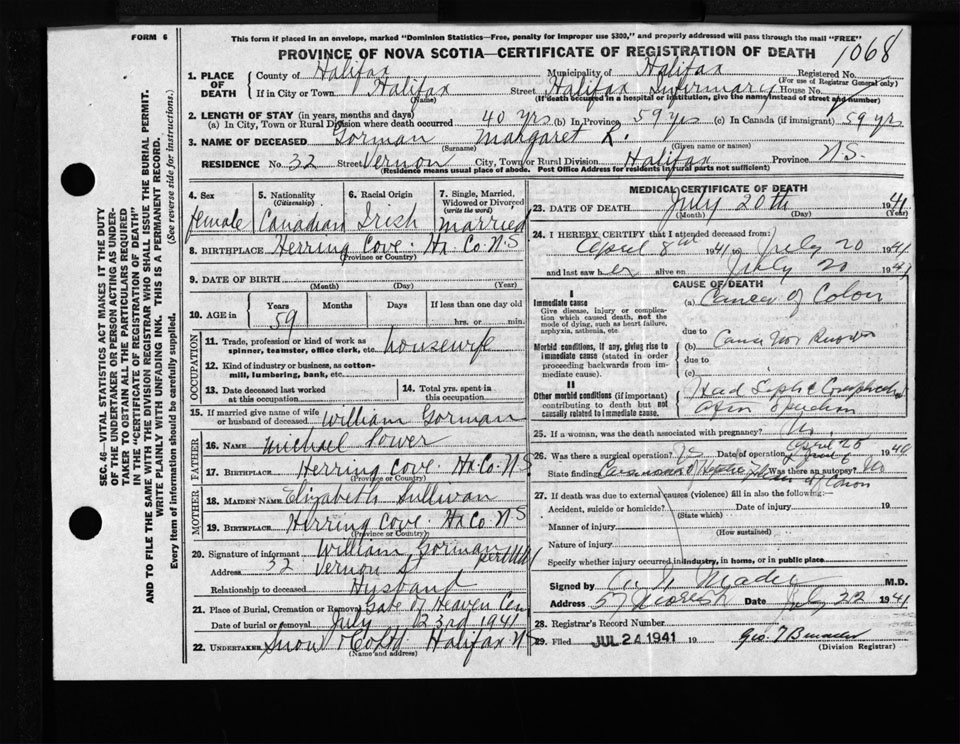 FORM 6
This form if placed in an envelope, marked "Dominion Statistics—Free, penalty for improper use $300," and properly addressed will pass through the mail "FREE"
PROVINCE OF NOVA SCOTIA—CERTIFICATE OF REGISTRATION OF DEATH
1068
SEC. 46—VITAL STATISTICS ACT MAKES IT THE DUTY
OF THE UNDERTAKER OR PERSON ACTING AS UNDER-
TAKER TO OBTAIN ALL THE PARTICULARS REQUIRED
IN THE "CERTIFICATE OF REGISTRATION OF DEATH"
AND TO FILE THE SAME WITH THE DIVISION REGISTRAR WHO SHALL ISSUE THE BURIAL PERMIT.
WRITE PLAINLY WITH UNFADING INK. THIS IS A PERMANENT RECORD.
Every item of information should be carefully supplied. (See reverse side for instructions.)
1. PLACE OF DEATH
County of Halifax Municipality of Halifax Registered No.
(For use of Registrar General only)
If in City or Town Halifax Street Halifax Infirmary House No.
(Name) (If death occurred in a hospital or institution, give the name instead of street and number)
2. LENGTH OF STAY (in years, months and days)
(a) In City, Town or Rural Division where death occurred 40 yrs (b) In Province 59 yrs (c) In Canada (if immigrant) 59 yrs
3. NAME OF DECEASED Gorman Margaret K.
(Surname) (Given name or names)
RESIDENCE No. 32 Street Vernon City, Town or Rural Division Halifax Province N.S.
(Residence means usual place of abode. Post Office Address for residents in rural parts not sufficient)
4. Sex
female
5. Nationality
(Citizenship)
Canadian
6. Racial Origin
Irish
7. Single, Married, Widowed or Divorced
(write the word)
Married
8. BIRTHPLACE Herring Cove. Hx. Co. N.S
(Province or Country)
9. DATE OF BIRTH
(Month) (Day) (Year)
10. AGE in
Years Months Days If less than one day old
59 hrs. or min.
OCCUPATION
11. Trade, profession or kind of work as spinner, teamster, office clerk, etc. housewife
12. Kind of industry or business, as cotton-mill, lumbering, bank, etc.
13. Date deceased last worked at this occupation
14. Total yrs. spent in this occupation
15. If married give name of wife or husband of deceased William Gorman
FATHER
16. NAME Michael Power
17. BIRTHPLACE Herring Cove. Hx. Co. N.S
(Province or Country)
MOTHER
18. MAIDEN NAME Elizabeth Sullivan
19. BIRTHPLACE Herring Cove. Hx Co N.S
(Province or Country)
20. Signature of informant William Gorman
Address 32 Vernon St
Relationship to deceased Husband
21. Place of Burial, Cremation or Removal Gate of Heaven Cem
Date of burial or removal July 23rd 1941
22. UNDERTAKER Snow & Co Ltd. Halifax N.S
(Name and address)
MEDICAL CERTIFICATE OF DEATH
23. DATE OF DEATH July 20th 1941
(Month) (Day) (Year)
24. I HEREBY CERTIFY that I attended deceased from:
April 8th 1941 to July 20 1941
and last saw her alive on July 20 1941
CAUSE OF DEATH
I
Immediate cause
Give disease, injury or complication which caused death, not the mode of dying, such as heart failure, asphyxia, asthenia, etc.
(a) Cancer of Colon
due to
Morbid conditions, if any, giving rise to immediate cause (stated in order proceeding backwards from immediate cause).
(b) Cause not Known
due to
(c)
II
Other morbid conditions (if important) contributing to death but not causally related to immediate cause.
Had
25. If a woman, was the death associated with pregnancy? No
26. Was there a surgical operation? Date of operation April 25 1940
State findings Carcinoma of Colon Was there an autopsy? No
27. If death was due to external causes (violence) fill in also the following:—
Accident, suicide or homicide? Date of injury 19
(State which)
Manner of injury
(How sustained)
Nature of injury
Specify whether injury occurred in industry, in home, or in public place
Signed by M.D.
Address 57 Date July 22 1941
28. Registrar's Record Number
29. Filed JUL 24 1941 19
(Division Registrar)